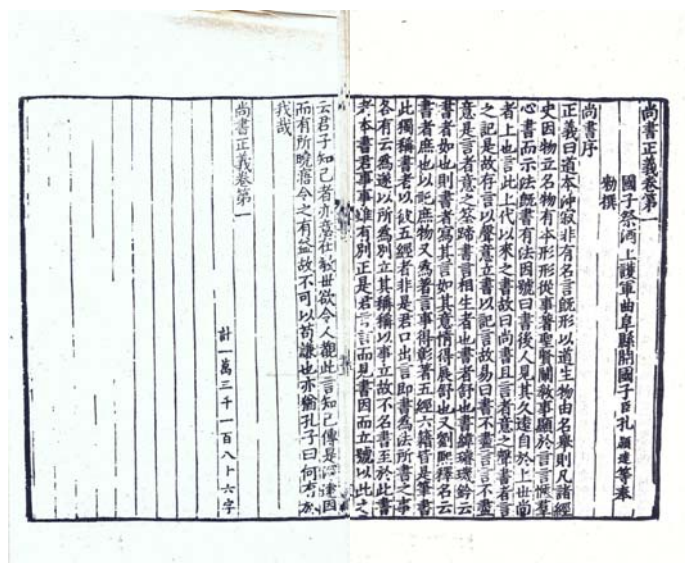 尚書正義卷第一
國子祭酒上護軍曲阜縣開國子臣孔穎達等奉
勑撰
尚書序
正義曰道本沖寂非有名言既形以道生物由名舉則凡諸經
史因物立名物有本形形從事著聖賢闡教事顯於言言愜羣
心書而示法既書有法因號曰書後人見其久遠自於上世尚
者上也言此上代以來之書故曰尚書且言者意之聲書者言
之記是故存言以聲意立書以記言故易曰書不盡言言不盡
意是言者意之筌蹄書言相生者也書者舒也書緯璿璣鈐云
書者如也則書者寫其言如其意情得展舒也又劉熙釋名云
書者庶也以記庶物又為著言事得彰著五經六籍皆是筆書
此獨稱書者以彼五經者非是君口出言即書為法所書之事
各有云為遂以所為別立其稱稱以事立故不名書至於此書
者本書君事事雖有別正是君言言而見書因而立號以此之
云君子知己者亦意在教世欲令人觀此言知己傳是深達因
而有所曉寤令之有益故不可以苟謙也亦猶孔子曰何有於
我哉
尚書正義卷第一
計一萬三千一百八十六字